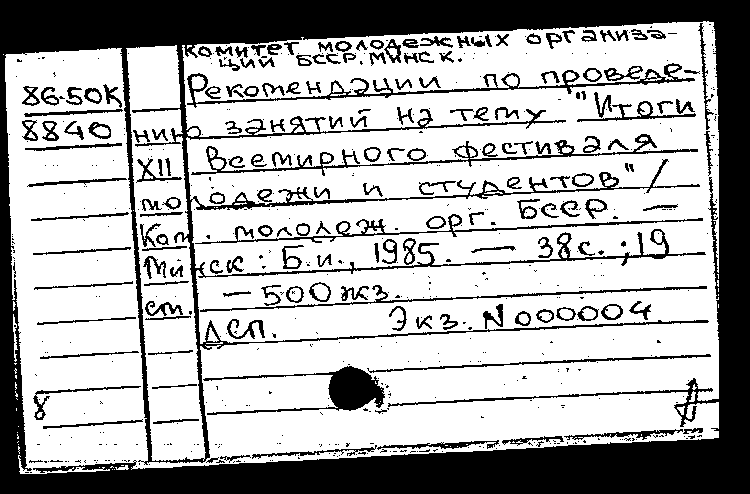 комитет молодежных организа-
ции БССР. МИНСК.
86-50К
Рекомендации по проведе-
8840
нию занятий на тему "Итоги
XII Всемирного фестиваля
молодежи и студентов"/
Ком. молодеж. орг. БССР. —
Минск: Б.и., 1985. — 38с.; 19
см. — 500 экз.
ДСП. Экз. N000004.
8